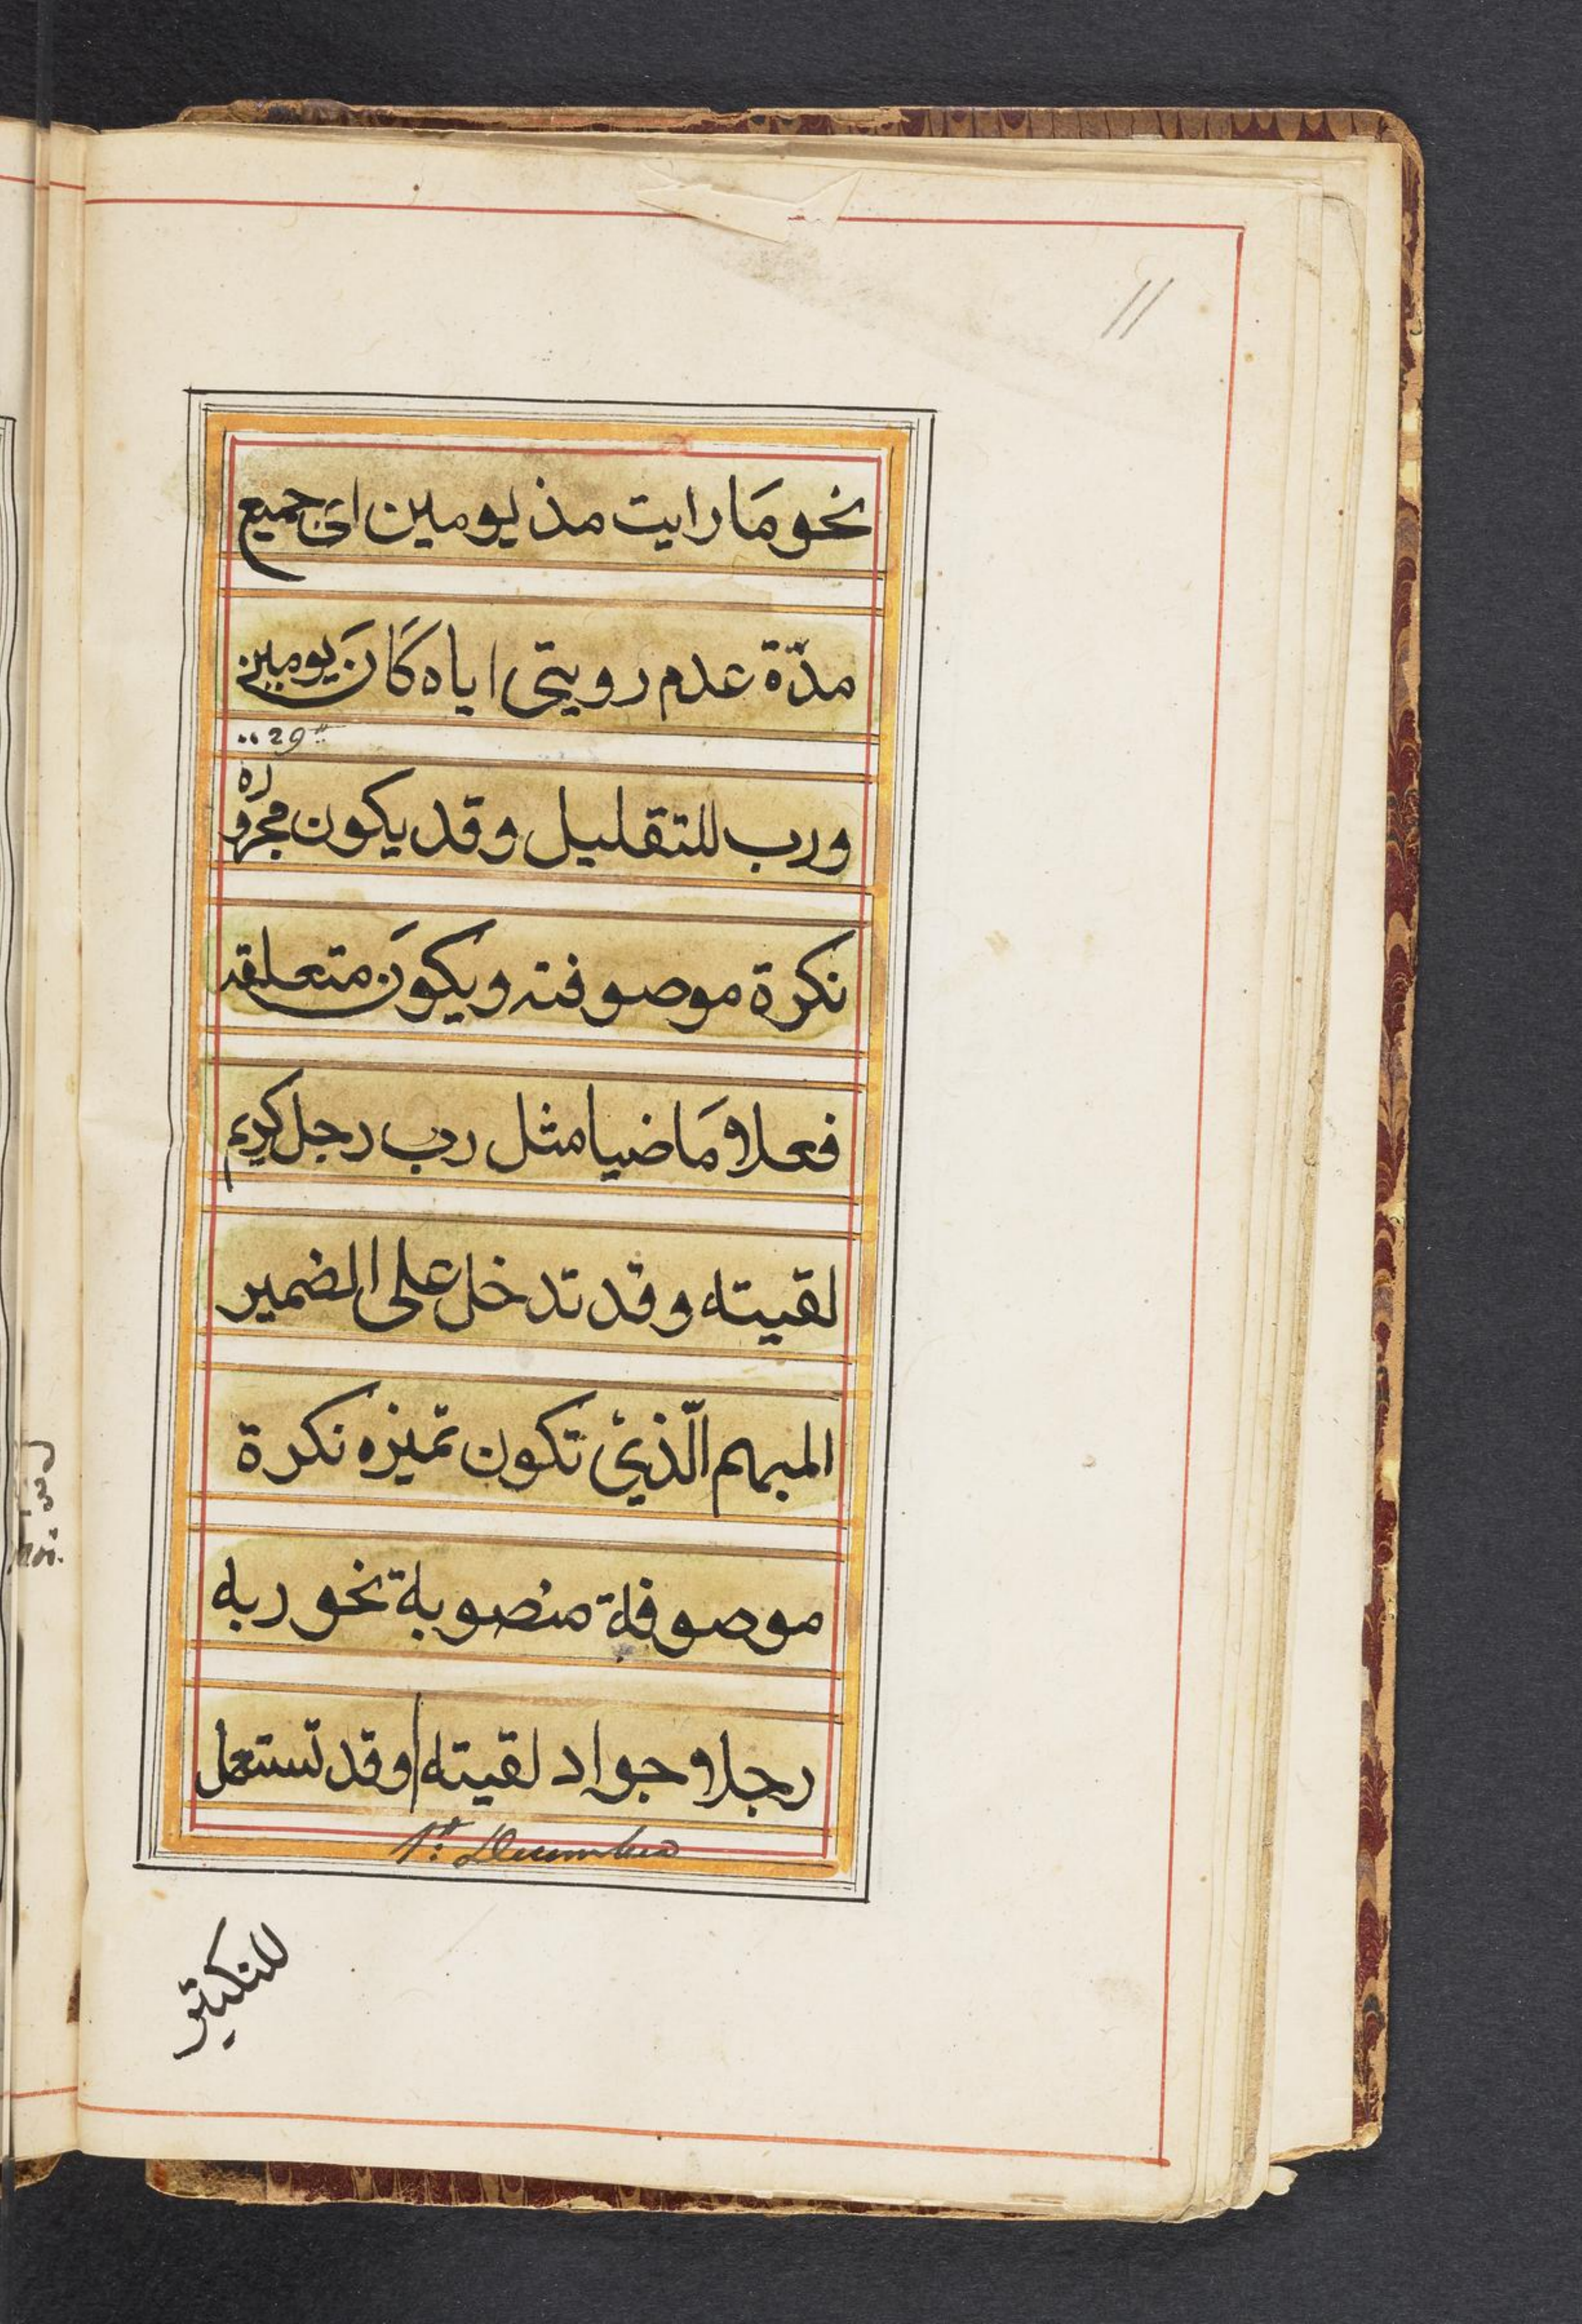 11
نحو مَا رايت مذ يومين اى جميع
مدّة عدم رويتى اياه كَانَ يومين
29
ورب للتقليل وقد يكون مجروره
نكرة موصوفة ويكوَن متعلقه
فعلا مَاضيا مثل رب رجل كريم
لقيته وقد تدخل على المضمير
المبهم الّذي تكون تميزه نكرة
موصوفة منصوبة نحو ربه
رجلا جواد لقيته وقد تستعمل
1st December
للتكثير